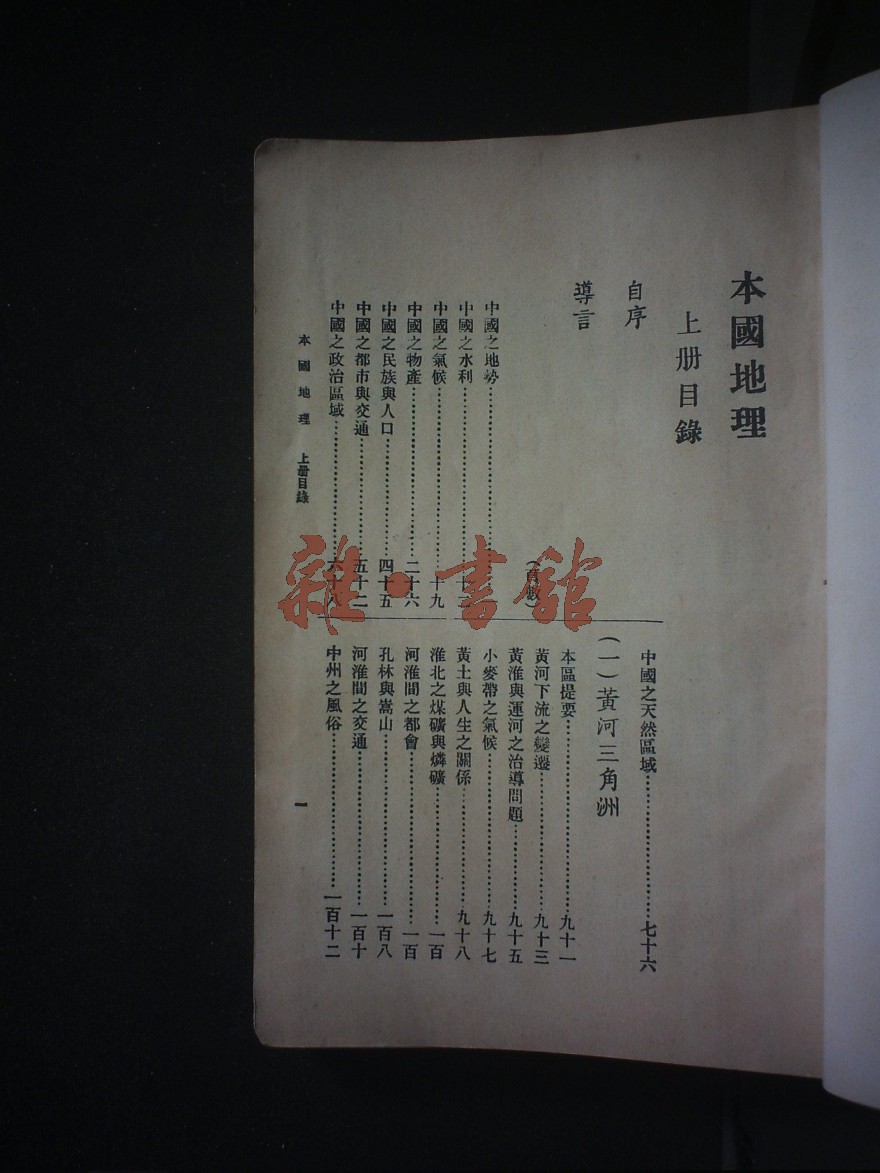 本國地理
上册目錄
自序
導言
(頁數)
中國之地勢
中國之水利
中國之氣候 十九
中國之物產 二十六
中國之民族與人口 四十五
中國之都市與交通 五十二
中國之政治區域 六十八
中國之天然區域 七十六
(一)黃河三角洲
本區提要 九十一
黃河下流之變遷 九十三
黃淮與運河之治導問題 九十五
小麥帶之氣候 九十七
黃土與人生之關係 九十八
淮北之煤礦與燐礦 一百
河淮間之都會 一百
孔林與嵩山 一百八
河淮間之交通 一百十
中州之風俗 一百十二
本國地理 上册目錄
一
雜·書館